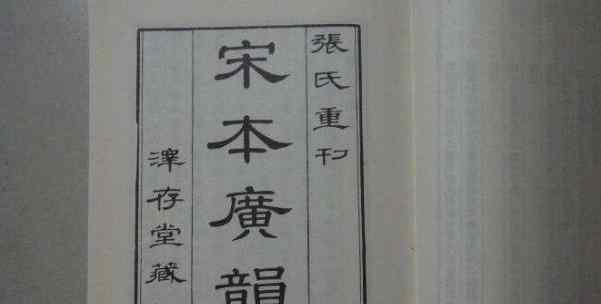 張氏重刊
宋本廣韻
澤存堂藏